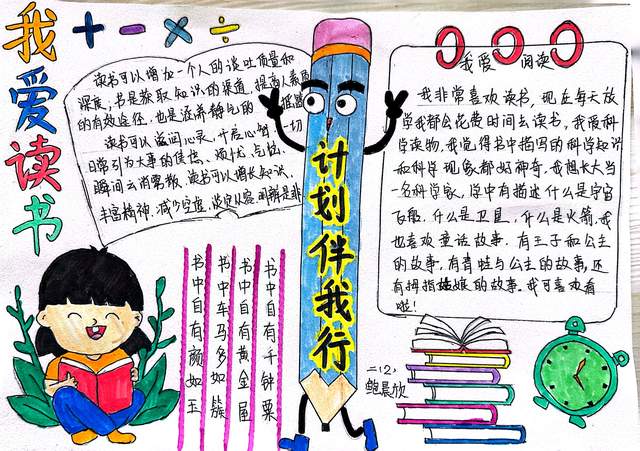 我爱读书
+ - × ÷
读书可以增加一个人的谈吐质量和
深度,书是获取知识的渠道,提高人素质
的有效途径.也是涵养静气的
读书可以滋润心灵,开启心智
一切
日常引为大事的焦虑、烦忧、气恼、
瞬间云消雾散,读书可以增长知识,
丰富精神,减少空虚,淡定从容,明辨是非
计划伴我行
我爱 阅读
我非常喜欢读书,现在每天放
学我都会花费时间去读书,我爱科
学读物,我觉得书中描写的科学知识
和科学现象都好神奇,我想长大当
一名科学家,学中有描述什么是宇宙
飞船,什么是卫星,什么是火箭.我
也喜欢童话故事,有王子和公主
的故事,有青蛙与公主的故事,还
有拇指姑娘的故事。我可喜欢看
啦!
书中自有颜如玉
书中车马多如簇
书中自有黄金屋
书中自有千钟粟
二(2)
鲍晨欣